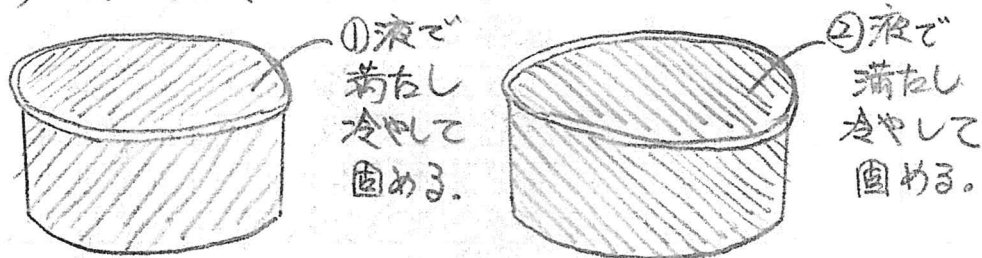 ①液で
満たし
冷やして
固める.
②液で
満たし
冷やして
固める。